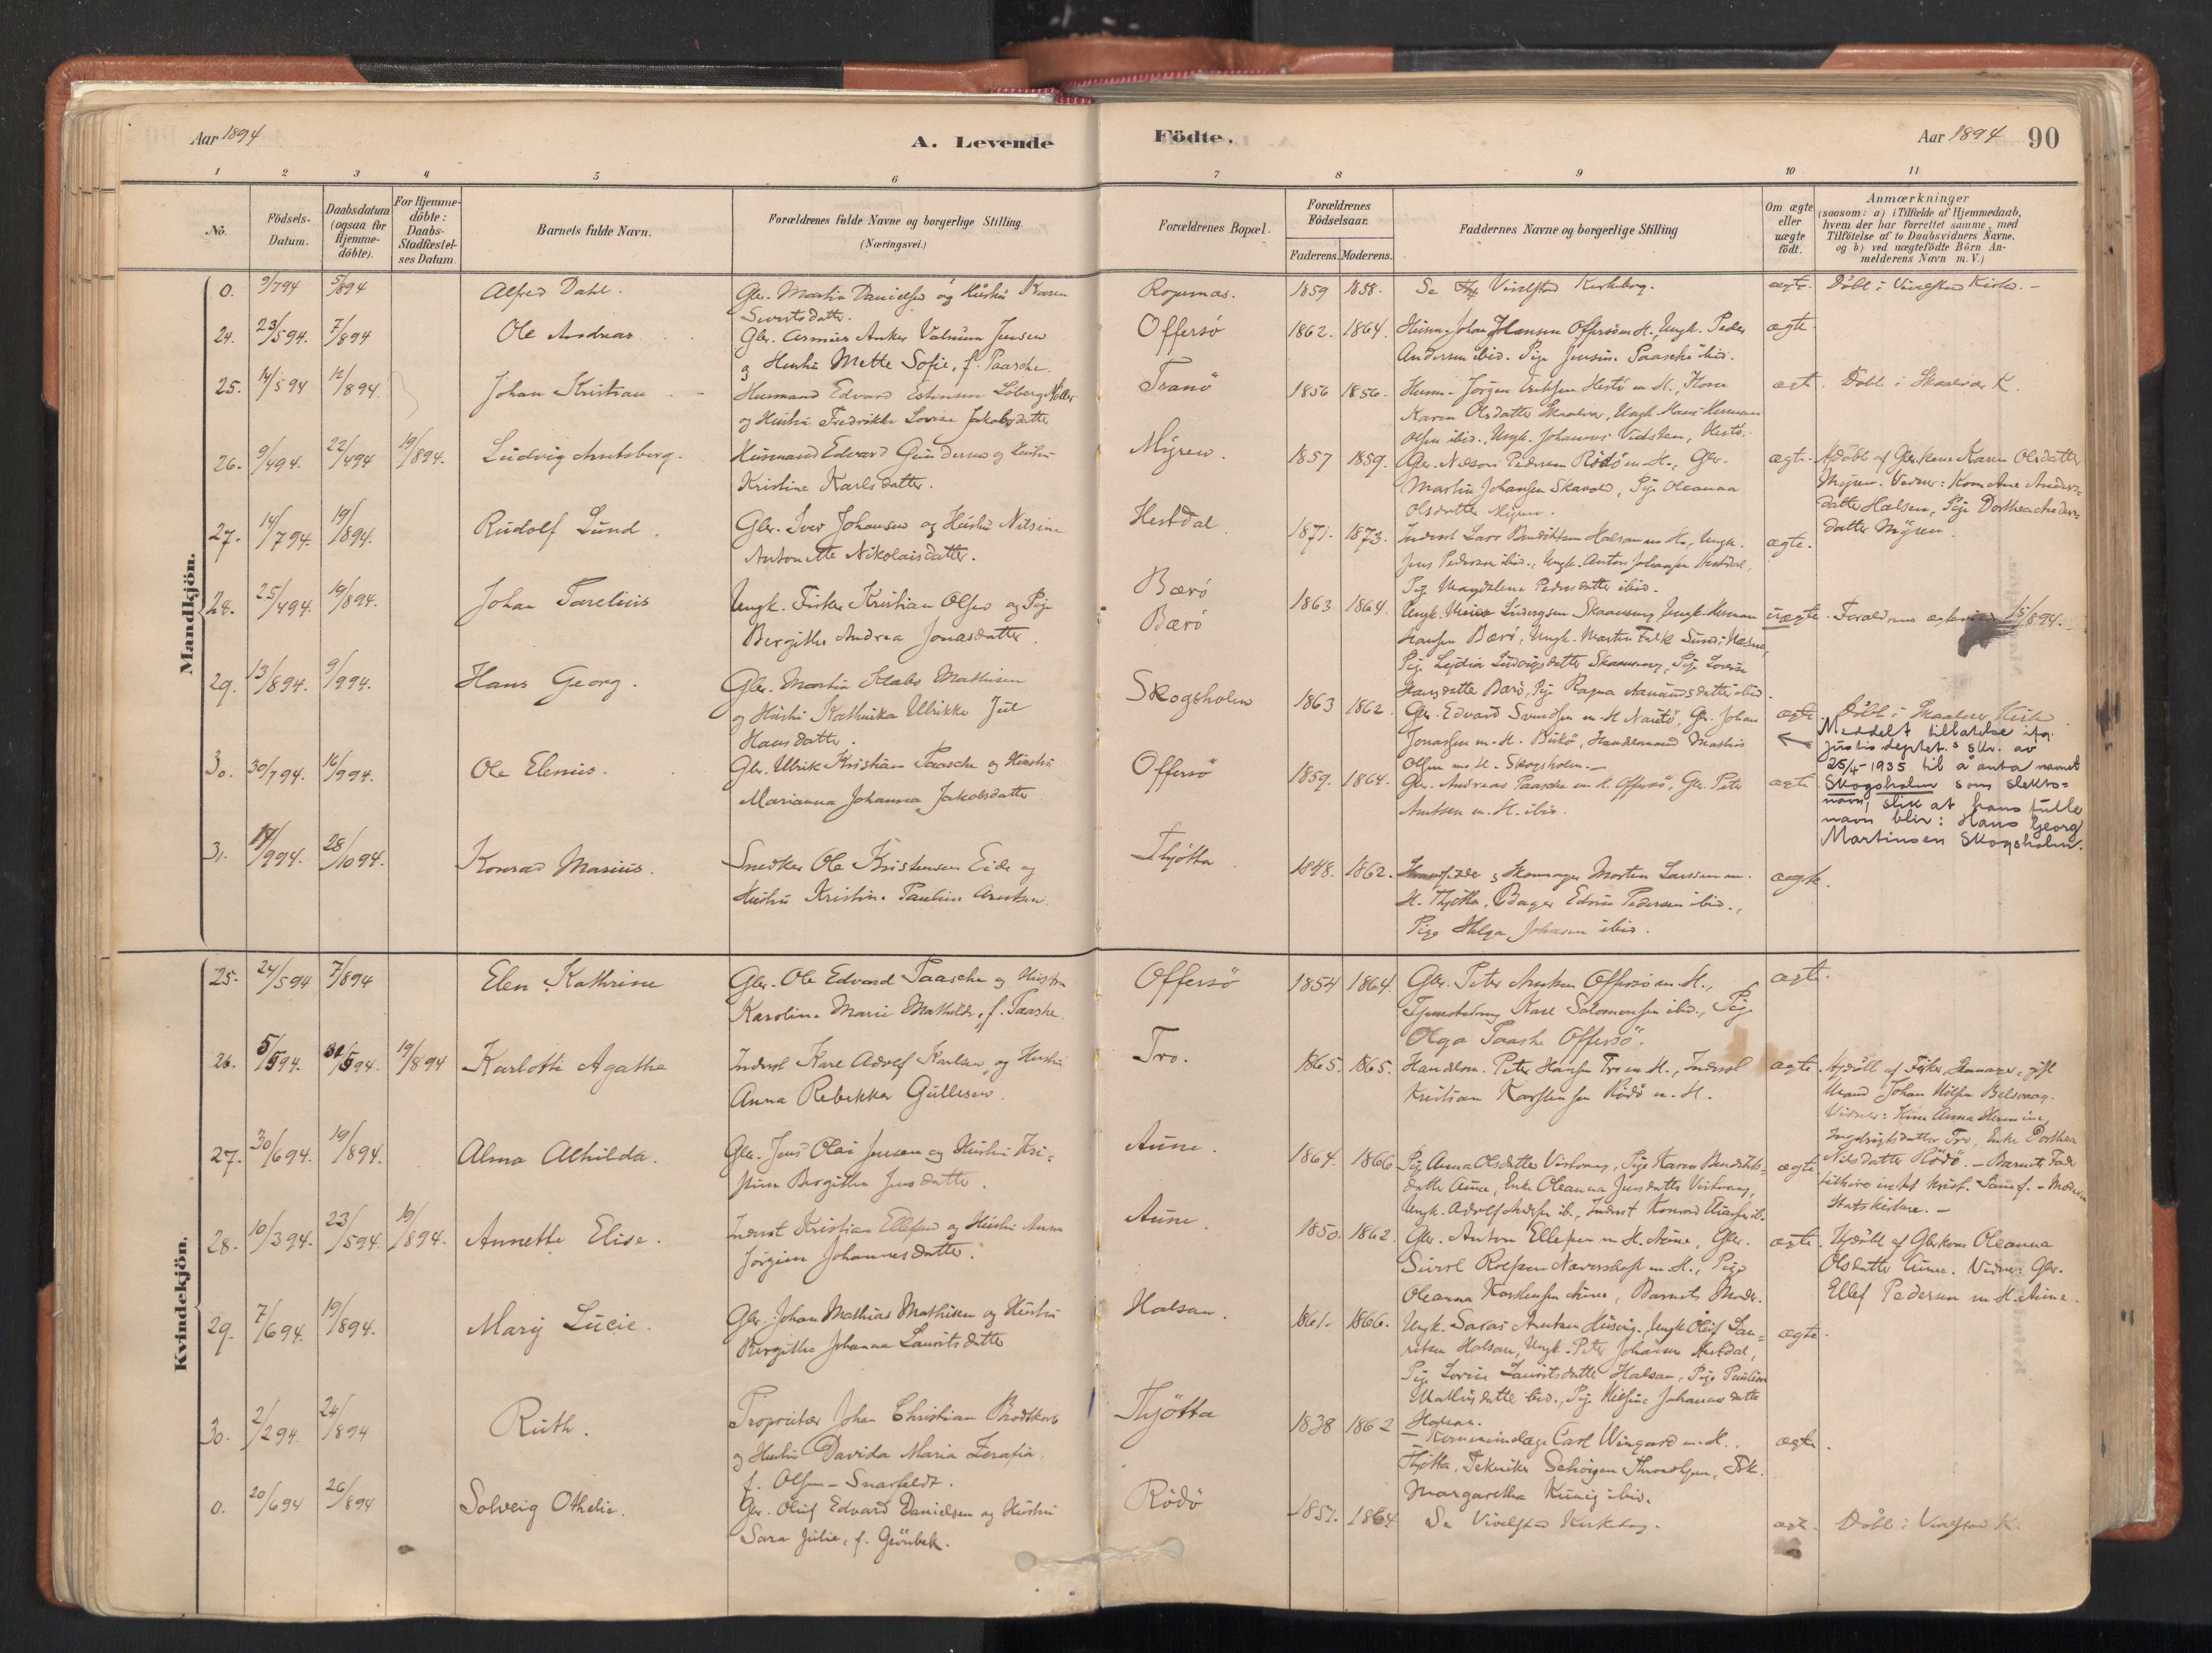 Aar 1894
A. Levende
Födte.
Aar 1894
90
1 2 3 4 5 6 7 8 9 10 11
No.
Födsels-Datum.
Daabsdatum (ogsaa for Hjemme-döbte).
For Hjemme-döbte: Daabs-Stadfæstel-ses Datum.
Barnets fulde Navn.
Forældrenes fulde Navne og borgerlige Stilling
(Næringsvei.)
Forældrenes Bopæl.
Forældrenes Födselsaar.
Faderens. Moderens.
Faddernes Navne og borgerlige Stilling
Om ægte eller uægte födt.
Anmærkninger
(saasom: a) i Tilfælde af Hjemmedaab,
hvem der har forrettet samme, med
Tilföielse af to Daabsvidners Navne.
og b) ved uægtefödte Börn An-
melderens Navn m.V.)
Mandkjön.
0. 9/794 5/894 Alfred Dahl. Gbr. Martin Danielsen og Hustru Karen
Sivertsdatter.
1859 1858. Se Vivelstad Kirkebog. ægte. Döbt i Vivelstad Kirke. -
24. 23/594. 7/894 Ole Andreas Gbr. Anker Jensen
og Hustru Mette Sofie, f. Paasche.
Offersö 1862. 1864. Johan Offersö m. H., Ungk. Peder
Andersen ibid. Pige Paasche ibid. ægte
25. 14/594 12/894. Johan Kristian Husmand Edvard Löberg Möller
og Hustru Fredrikke Lovise Jakobsdatter
Tranö 1856 1856. Jörgen m. H., Kone
Karen Olsdatter Skaalvær, Ungk. Hans Herman
Olsen ibid. Ungk. Johannes. ægte. Döbt i Skaalvær K.
26. 9/494. 22/494 19/894. Ludvig Arntsberg. Husmand Edvard Gundersen og Hustru
Kristine Karlsdatter.
Myren. 1857 1859. Gbr. Pedersen Rödö m. H., Gbr.
Martin Johansen, Pige Oleanna
Olsdatter Myren. ægte. Hjdöbt af Gbr.kone Karen Olsdatter
Myren. Vidner: Kone Ane Anders-
datter Halsen, Pige Dorthea
datter Myren.
27. 14/794. 19/894. Rudolf Lund. Gbr. Iver Johansen og Hustru Nilsine
Antonette Nikolaisdatter.
Hestdal. 1871. 1873. Inderst Lars Halsan m. H., Ungk.
Jens Pedersen ibid., Ungk. Anton Johansen Hestdal,
Pige Magdalene Pedersdatter ibid. ægte.
28. 25/494. 19/894. Johan Torelius Ungk. Fisker Kristian Olsen og Pige
Bergithe Andrea Jonasdatter.
Bærö
Bærö
1863 1864. Ungk. Ludvigsen, Ungk. Herman
Hansen Bærö, Ungk. Martin Falk,
Pige Lydia Ludvigsdatter, Pige Lovise
Hansdatter Bærö, Pige Ragna ibid. uægte. 15/894.
29. 13/894. 9/994. Hans Georg. Gbr. Martin Klabo Mathisen
og Hustru Kathinka Ulrikke Jul
Hansdatter.
Skogsholm 1863 1862. Gbr. Edvard Svendsen m. H., Gbr. Johan
Jonassen m. H., Handelsmand Mathis
Olsen m. H. Skogsholm. - ægte. Döbt i Skaalvær Kirke
Meddelt tillatelse ifg.
Justisdeptet.s skr. av
25/4-1935 til å anta navnet
Skogsholm som slekts-
navn, slik at hans fulle
navn blir: Hans Georg
Martinsen Skogsholm.
30. 30/794. 16/994. Ole Elenius. Gbr. Ulrik Kristian Paasche og Hustru
Marianna Johanna Jakobsdatter
Offersö 1859. 1864. Gbr. Andreas Paasche m. H. Offersö, Gbr. Peter
Arntsen m. H. ibid. ægte
31. 17/994. 28/1094. Konrad Marius. Snedker Ole Kristensen Eide og
Hustru Kristine Pauline Arntsen.
Thjötta 1848. 1862. Skomager Morten Larssen m.
H. Thjötta, Bager Edvin Pedersen ibid.,
Pige Helga Johansen ibid. ægte.
Kvindekjön.
25. 24/594 7/894 Elen Kathrine Gbr. Ole Edvard Paasche og Hustru
Karoline Marie Mathilde, f. Paasche.
Offersö 1854 1864. Gbr. Peter Arntsen Offersö m. H.,
Tjenestedreng Karl Salomonsen ibid., Pige
Olga Paasche Offersö. ægte.
26. 5/594. 31/594. 19/894 Karlotte Agathe Inderst Karl Adolf Karlsen og Hustru
Anna Rebekka Gullesen.
Tro. 1865. 1865. Handelsm. Peter Hansen Tro m. H., Inderst
Kristian Karstensen Rödö m. H. ægte. Hjdöbt af Fisker, gift
Mand Johan Nilsen.
Vidner: Kone Anna
Tro, Enke Dorthea
Nilsdatter Rödö. - Barnets Fader
tilhörer. - Moderen
Statskirken. -
27. 30/694. 19/894. Alma Alhilda. Gbr. Jens Olai Jensen og Hustru Kri-
stine Bergithe Jensdatter.
Aune. 1864. 1866 Pige Anna Olsdatter, Pige Karen
datter Aune, Enke Oleanna Jensdatter,
Ungk. Adolf, Inderst Konrad. ægte
28. 10/394. 23/594. 19/894. Annette Elise. Inderst Kristian Ellefsen og Hustru Anna
Jörgine Johannesdatter.
Aune. 1850. 1862. Gbr. Anton Ellefsen m. H. Aune, Gbr.
Sivert m. H., Pige
Oleanna Karstensen Aune, Barnets Moder. ægte. Hjdöbt af Gbr.kone Oleanna
Olsdatter Aune. Vidner: Gbr.
Ellef Pedersen m. H. Aune.
29. 7/694. 19/894. Mary Lucie. Gbr. Johan Mathias Mathisen og Hustru
Bergithe Johanna Lauritsdatter
Halsan. 1861. 1866. Ungk. Arntsen Husvig. Ungk. Oluf Lau-
ritsen Halsan, Ungk. Peter Johansen Hestdal,
Pige Lovise Lauritsdatter Halsan, Pige Pauline
Mathisdatter ibid., Pige Johannesdatter
Halsan. ægte.
30. 2/294. 24/894 Ruth. Proprietær Johan Christian Brodtkorb
og Hustru Davida Maria Serafia,
f. Olsen-Snarteldt.
Thjötta 1838 1862 Kommunelæge Carl Wingaard m. H.,
Thjötta, Tekniker, Frk.
Margaretha ibid. ægte.
0. 20/694 26/894 Solveig Othelie. Gbr. Oluf Edvard Danielsen og Hustru
Sara Julie, f. Grönbek.
Rödö 1857. 1864 Se Vivelstad Kirkebog. ægte. Döbt i Vivelstad K.